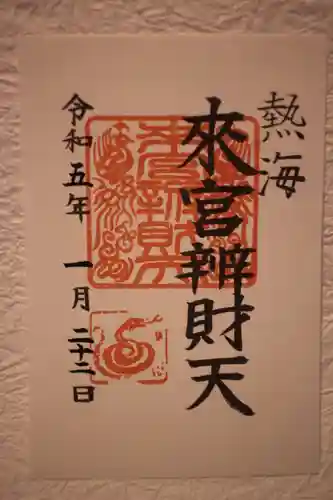 熱海
來宮辨財天
令和五年 一月 二十二日